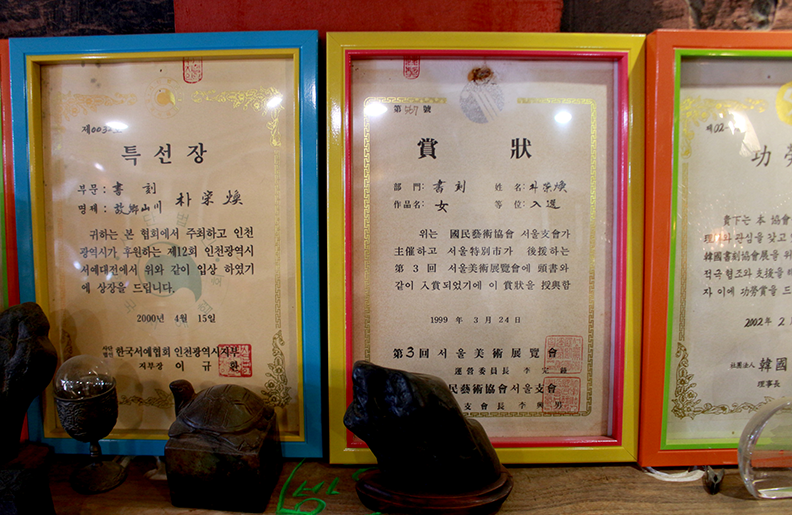 특선장
부문: 書 刻
명제: 故鄕山川 朴栄煥
귀하는 본 협회에서 주최하고 인천
광역시가 후원하는 제12회 인천광역시
서예대전에서 위와 같이 입상 하였기
에 상장을 드립니다.
2000년 4월 15일
사단법인 한국서예협회 인천광역시지부
지부장 이규환
第 號
賞狀
部門: 書刻 姓名:
作品名: 女 等位: 入選
위는 國民藝術協會 서울支會가
主催하고 서울特別市가 後援하는
第3回 서울美術展覽會에 頭書와
같이 入賞되었기에 이 賞狀을 授與함
1999年 3月 24日
第3回 서울美術展覽會
運營委員長 李
民藝術協會 서울支會
支會長 李 男
功
貴下는 本 協會
韓國書刻協會展을
적극 협조와 支援을
자 이에 功勞賞을 드
2002年 2
社團法人 韓國
理事長